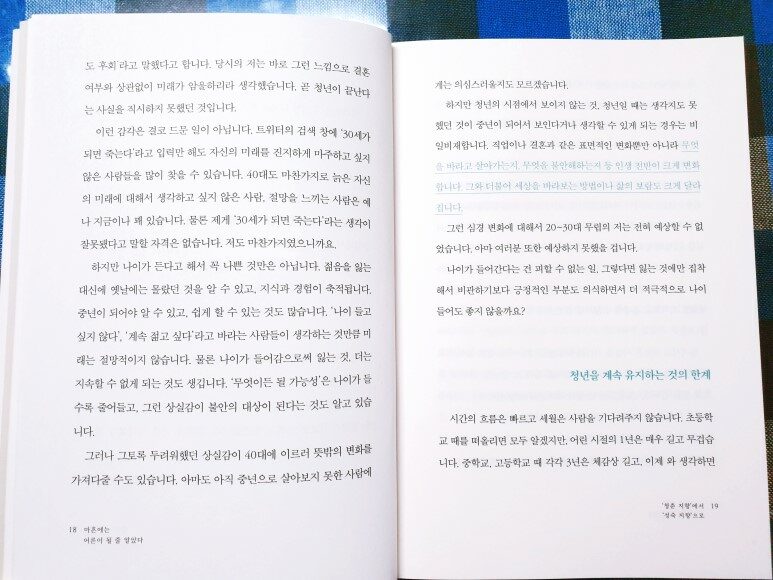 도 후회'라고 말했다고 합니다. 당시의 저는 바로 그런 느낌으로 결혼
여부와 상관없이 미래가 암울하리라 생각했습니다. 곧 청년이 끝난다
는 사실을 직시하지 못했던 것입니다.
이런 감각은 결코 드문 일이 아닙니다. 트위터의 검색 창에 '30세가
되면 죽는다'라고 입력만 해도 자신의 미래를 진지하게 마주하고 싶지
않은 사람들을 많이 찾을 수 있습니다. 40대도 마찬가지로 늙은 자신
의 미래에 대해서 생각하고 싶지 않은 사람, 절망을 느끼는 사람은 예
나 지금이나 꽤 있습니다. 물론 제게 '30세가 되면 죽는다'라는 생각이
잘못됐다고 말할 자격은 없습니다. 저도 마찬가지였으니까요.
하지만 나이가 든다고 해서 꼭 나쁜 것만은 아닙니다. 젊음을 잃는
대신에 옛날에는 몰랐던 것을 알 수 있고, 지식과 경험이 축적됩니다.
중년이 되어야 알 수 있고, 쉽게 할 수 있는 것도 많습니다. '나이 들고
싶지 않다', '계속 젊고 싶다'라고 바라는 사람들이 생각하는 것만큼 미
래는 절망적이지 않습니다. 물론 나이가 들어감으로써 잃는 것, 더는
지속할 수 없게 되는 것도 생깁니다. '무엇이든 될 가능성'은 나이가 들
수록 줄어들고, 그런 상실감이 불안의 대상이 된다는 것도 알고 있습
니다.
그러나 그토록 두려워했던 상실감이 40대에 이르러 뜻밖의 변화를
가져다줄 수도 있습니다. 아마도 아직 중년으로 살아보지 못한 사람에
18 마흔에는
어른이 될 줄 알았다
게는 의심스러울지도 모르겠습니다.
하지만 청년의 시점에서 보이지 않는 것, 청년일 때는 생각지도 못
했던 것이 중년이 되어서 보인다거나 생각할 수 있게 되는 경우는 비
일비재합니다. 직업이나 결혼과 같은 표면적인 변화뿐만 아니라 무엇
을 바라고 살아가는지, 무엇을 불안해하는지 등 인생 전반이 크게 변화
합니다. 그와 더불어 세상을 바라보는 방법이나 삶의 보람도 크게 달라
집니다.
그런 심경 변화에 대해서 20~30대 무렵의 저는 전혀 예상할 수 없
었습니다. 아마 여러분 또한 예상하지 못했을 겁니다.
나이가 들어간다는 건 피할 수 없는 일, 그렇다면 잃는 것에만 집착
해서 비관하기보다 긍정적인 부분도 의식하면서 더 적극적으로 나이
들어도 좋지 않을까요?
청년을 계속 유지하는 것의 한계
시간의 흐름은 빠르고 세월은 사람을 기다려주지 않습니다. 초등학
교 때를 떠올리면 모두 알겠지만, 어린 시절의 1년은 매우 길고 무겁습
니다. 중학교, 고등학교 때 각각 3년은 체감상 길고, 이제 와 생각하면
'청춘 지향'에서 19
'성숙 지향'으로